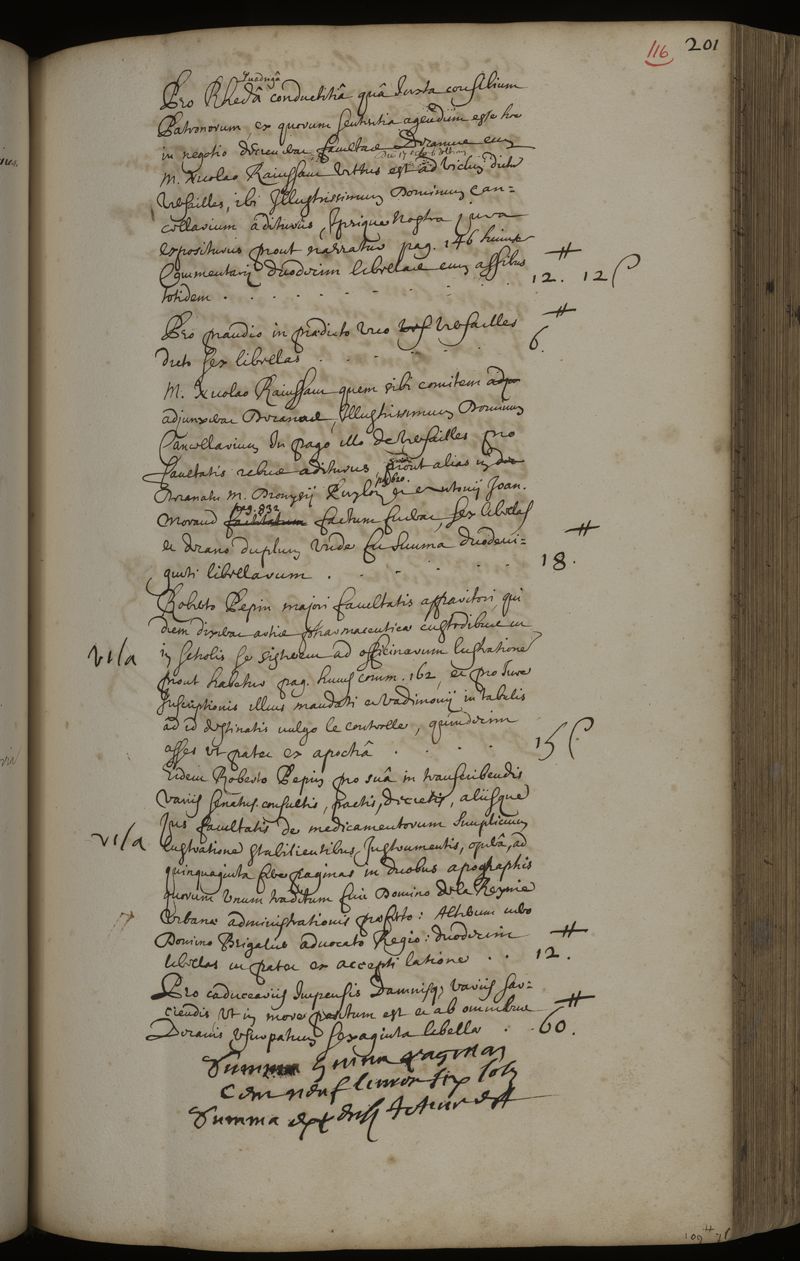 116 201
quadrigâ
Pro Rhedâ conductitiâ quâ Iuxta consilium
Patronorum, ex quorum sententia agendum esse hoc
in negotio decreverat facultas Decanus cum
M. Nicolao Rainssant vectus est ad vicum dictum
Versailles, ibi Illustrissimum Dominum Can=
cellarium aditurus, Ipsique nostra jura
expositurus prout narratur pag. 146 huiusce
Commentarij duodecim libellae cum assibus
totidem . . . . . . . . . 12. 12 s
Pro prandio in praedicto vico Versailles
dicto sex libellas . . . . . 6.
M. Nicolao Rainssant quem sibi comitem
adjunxerat Decanus, Illustrissimum Dominum
Cancellarium In pago illo de Versailles pro
facultatis rebus aditurus, prout alias in
Decanatu M. Dionysij Puylon et Antonij Joan.
pag. 832
Morand factitatum factum fuerat, sex libellas
et decano duplum unde fit summa duodevi=
ginti libellarum . . . . . . 18.
Roberto Pepin majori facultatis apparitori, qui
diem dixerat artis pharmaceuticae custodibus ut
vi/a in scholis se sisterent ad officinarum lustrationem
prout habetur pag. huius comm. 162, et pro Iure
Inscriptionis illius mandati et vadimonij in tabulis
ad id destinatis vulgo le controlle, quindecim
asses ut patet ex apochâ . . . . 15 s
Eidem Roberto Pepin pro suâ in transcribendis
variis senatus consultis, pactis, decretis, aliisque
Ius facultatis de medicamentorum simplicium
vi/a lustratione stabilientibus Instrumentis, operâ, ad
quinquaginta fere paginas in duobus apographis
quorum unum traditum fuit Domino de la Reynie
Urbanae administrationis praefecto: Alterum vero
Domino Brigalier advocato Regio: duodecim
libellas ut patet ex accepti latione . . 12.
Pro caduceariis Impensis Damnisque variis sar=
ciendis ut in more positum est et ab omnibus
Decanis usurpatum sexaginta libellae . 60.
Summa huius paginae
Cent neuf livres sept sols
Summa
109 tt 7 s